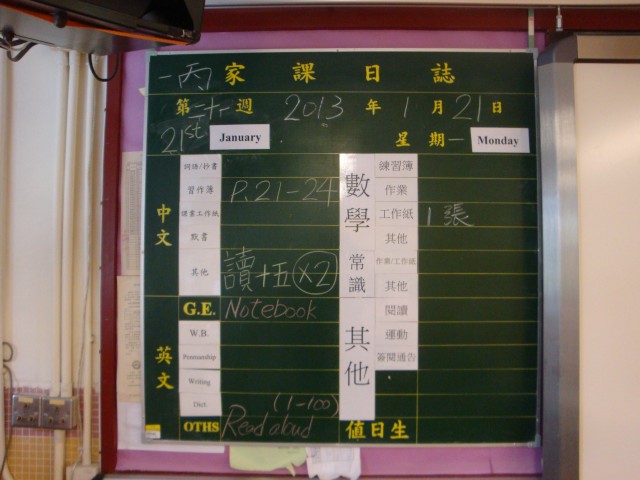 一丙 家課日誌
第二十一週 2013年1月21日
21st January 星期一 Monday
中文
詞語/抄書
習作簿 P.21-24
譯書工作紙
默書
其他 讀十五 x2
英文
G.E. Notebook
W.B.
Penmanship
Writing
Dict. (1-100)
OTHS Read aloud
數學
練習簿
作業
工作紙 1張
其他
常識
作業/工作紙
其他
其他
閱讀
運動
簽閱通告
值日生